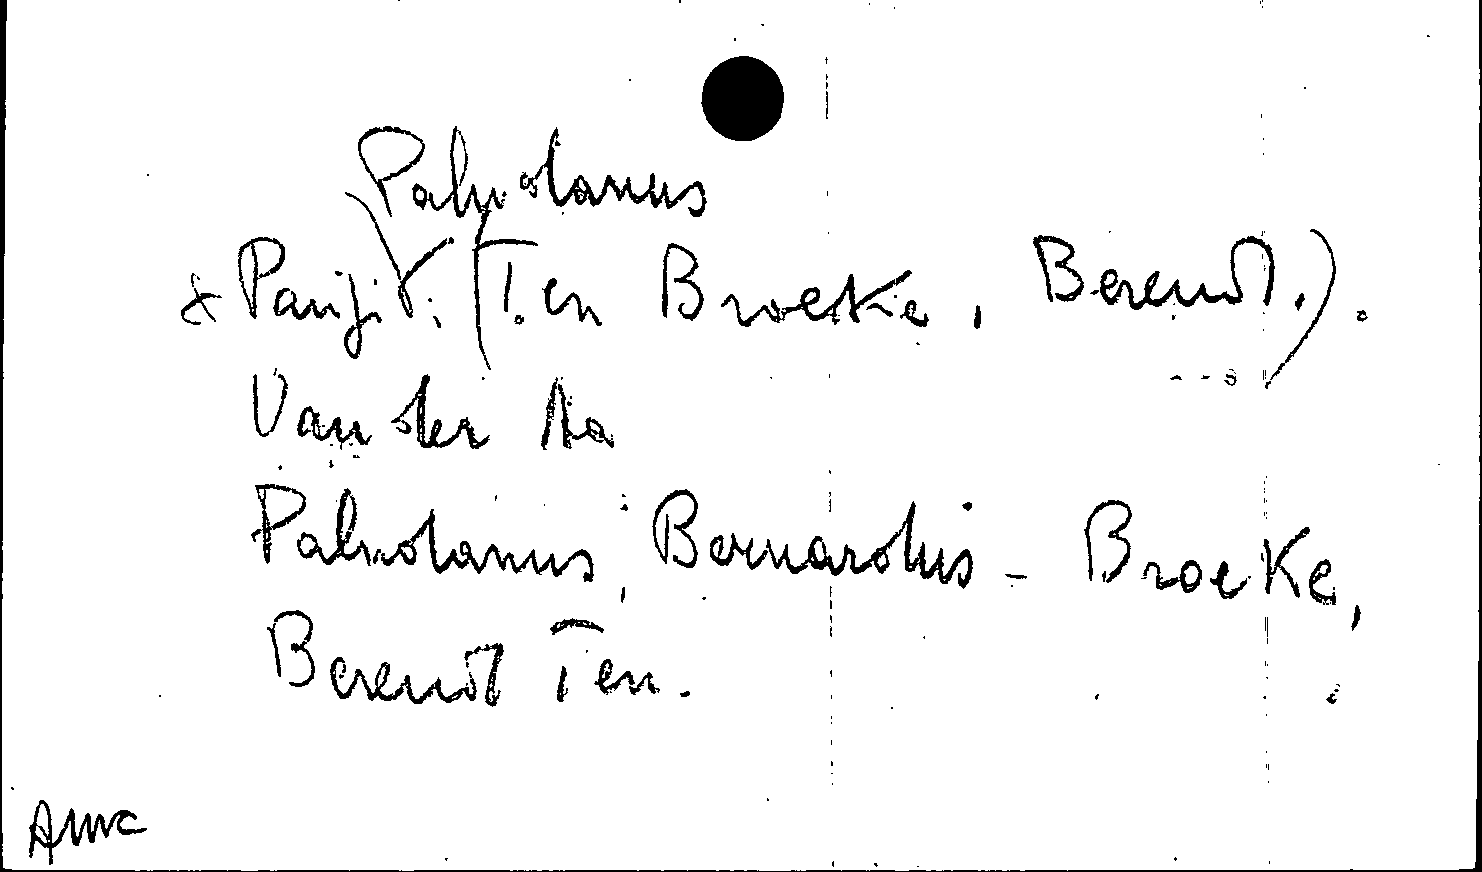 Paludanus
Parijs. (Ten Broecke, Berend.).
Van der Aa
Paludanus, Bernardus - Broeke,
Berend Ten.